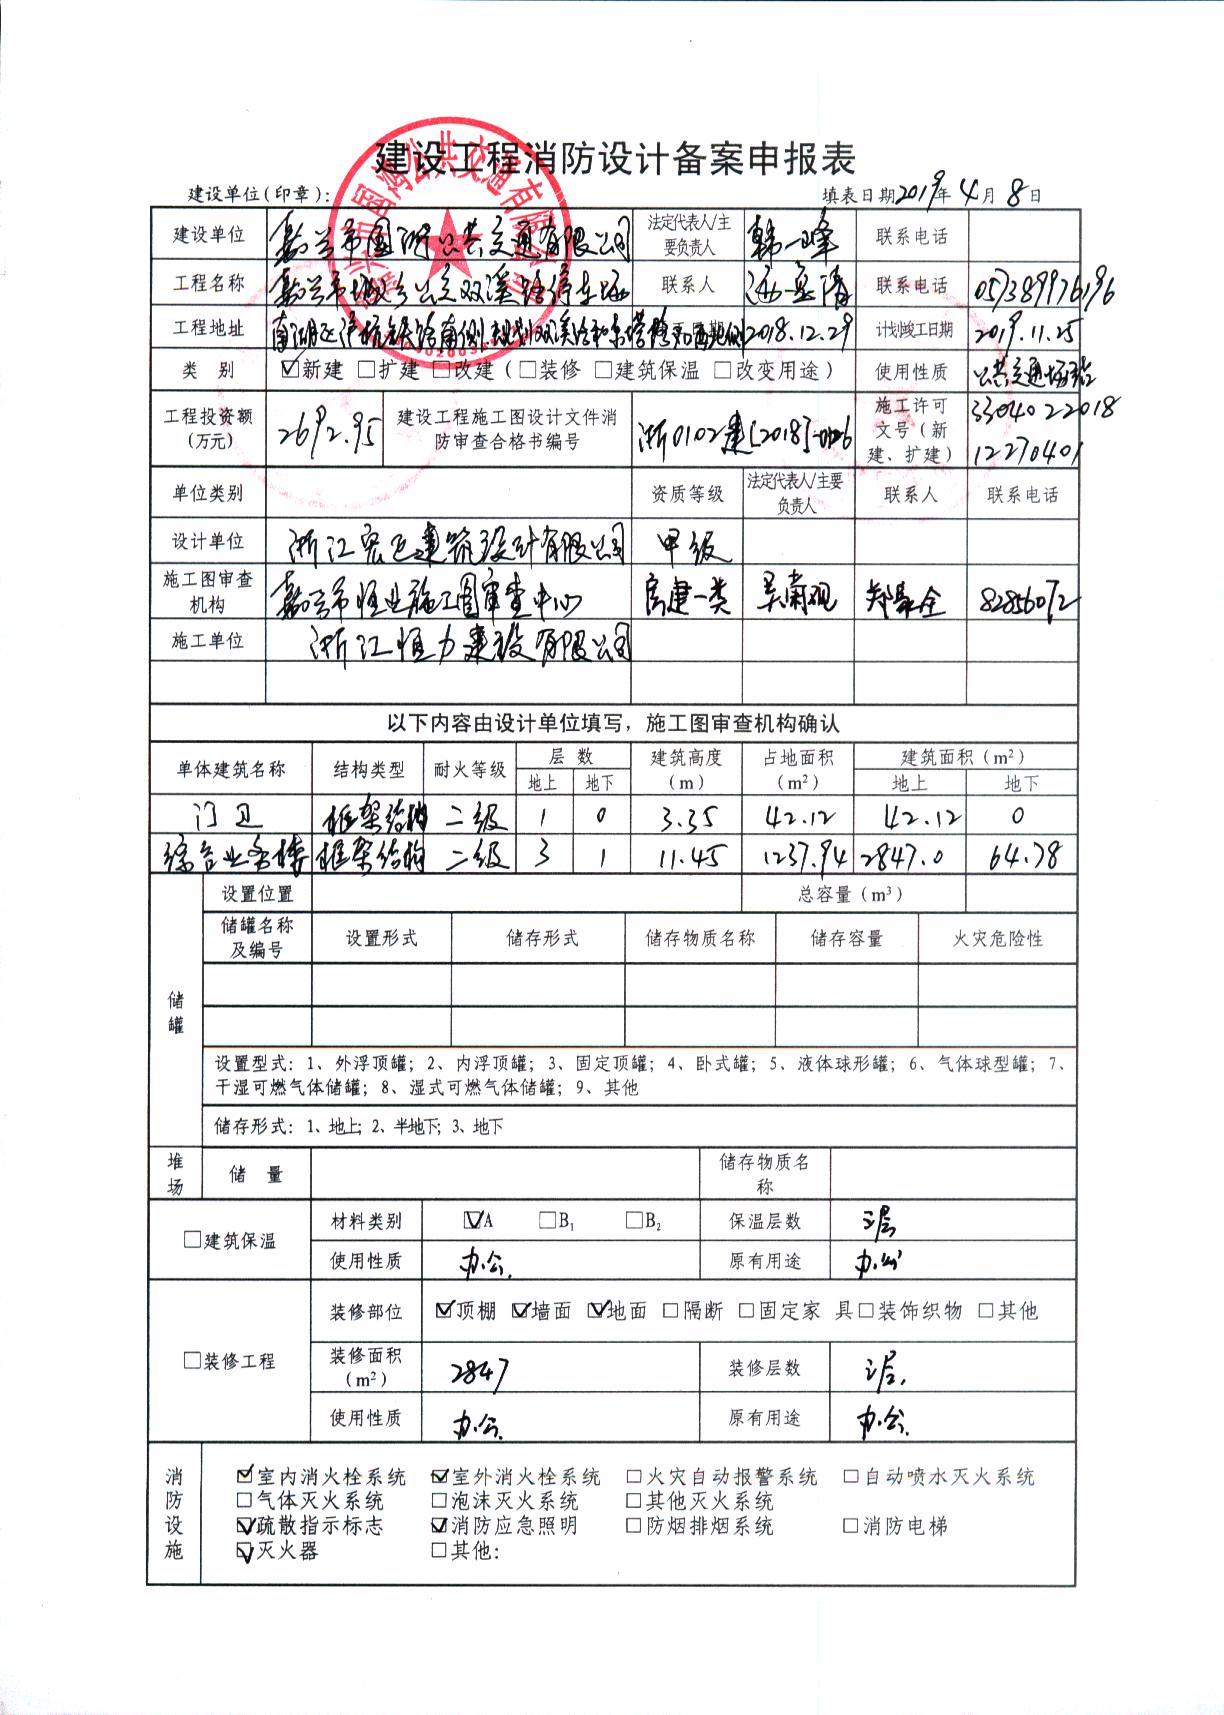 建设工程消防设计备案申报表
建设单位(印章): 填表日期2019年4月8日
建设单位 嘉兴市国鸿公共交通有限公司 法定代表人/主要负责人 韩一峰 联系电话
工程名称 嘉兴市城乡公交双溪路停车场 联系人 联系电话 057389976196
工程地址 南湖区 2018.12.29 计划竣工日期 2019.11.25
类 别 ☑新建 □扩建 □改建(□装修 □建筑保温 □改变用途) 使用性质 公共交通场站
工程投资额(万元) 2692.95 建设工程施工图设计文件消防审查合格书编号 浙0102建[2018]-0126 施工许可文号(新建、扩建) 330402201812270401
单位类别 资质等级 法定代表人/主要负责人 联系人 联系电话
设计单位 浙江宏正建筑设计有限公司 甲级
施工图审查机构 嘉兴市恒业施工图审查中心 房建一类 82856072
施工单位 浙江恒力建设有限公司
以下内容由设计单位填写，施工图审查机构确认
单体建筑名称 结构类型 耐火等级 层 数 建筑高度(m) 占地面积(m²) 建筑面积(m²)
地上 地下 地上 地下
门卫 框架结构 二级 1 0 3.35 42.12 42.12 0
综合业务楼 框架结构 二级 3 1 11.45 1237.94 2847.0 64.78
储罐
设置位置 总容量(m³)
储罐名称及编号 设置形式 储存形式 储存物质名称 储存容量 火灾危险性
设置型式：1、外浮顶罐；2、内浮顶罐；3、固定顶罐；4、卧式罐；5、液体球形罐；6、气体球型罐；7、
干湿可燃气体储罐；8、湿式可燃气体储罐；9、其他
储存形式：1、地上；2、半地下；3、地下
堆场 储 量 储存物质名称
□建筑保温 材料类别 ☑A □B₁ □B₂ 保温层数 3层
使用性质 办公. 原有用途 办公
□装修工程 装修部位 ☑顶棚 ☑墙面 ☑地面 □隔断 □固定家 具□装饰织物 □其他
装修面积(m²) 2847 装修层数 3层.
使用性质 办公. 原有用途 办公.
消防设施
☑室内消火栓系统 ☑室外消火栓系统 □火灾自动报警系统 □自动喷水灭火系统
□气体灭火系统 □泡沫灭火系统 □其他灭火系统
☑疏散指示标志 ☑消防应急照明 □防烟排烟系统 □消防电梯
☑灭火器 □其他: